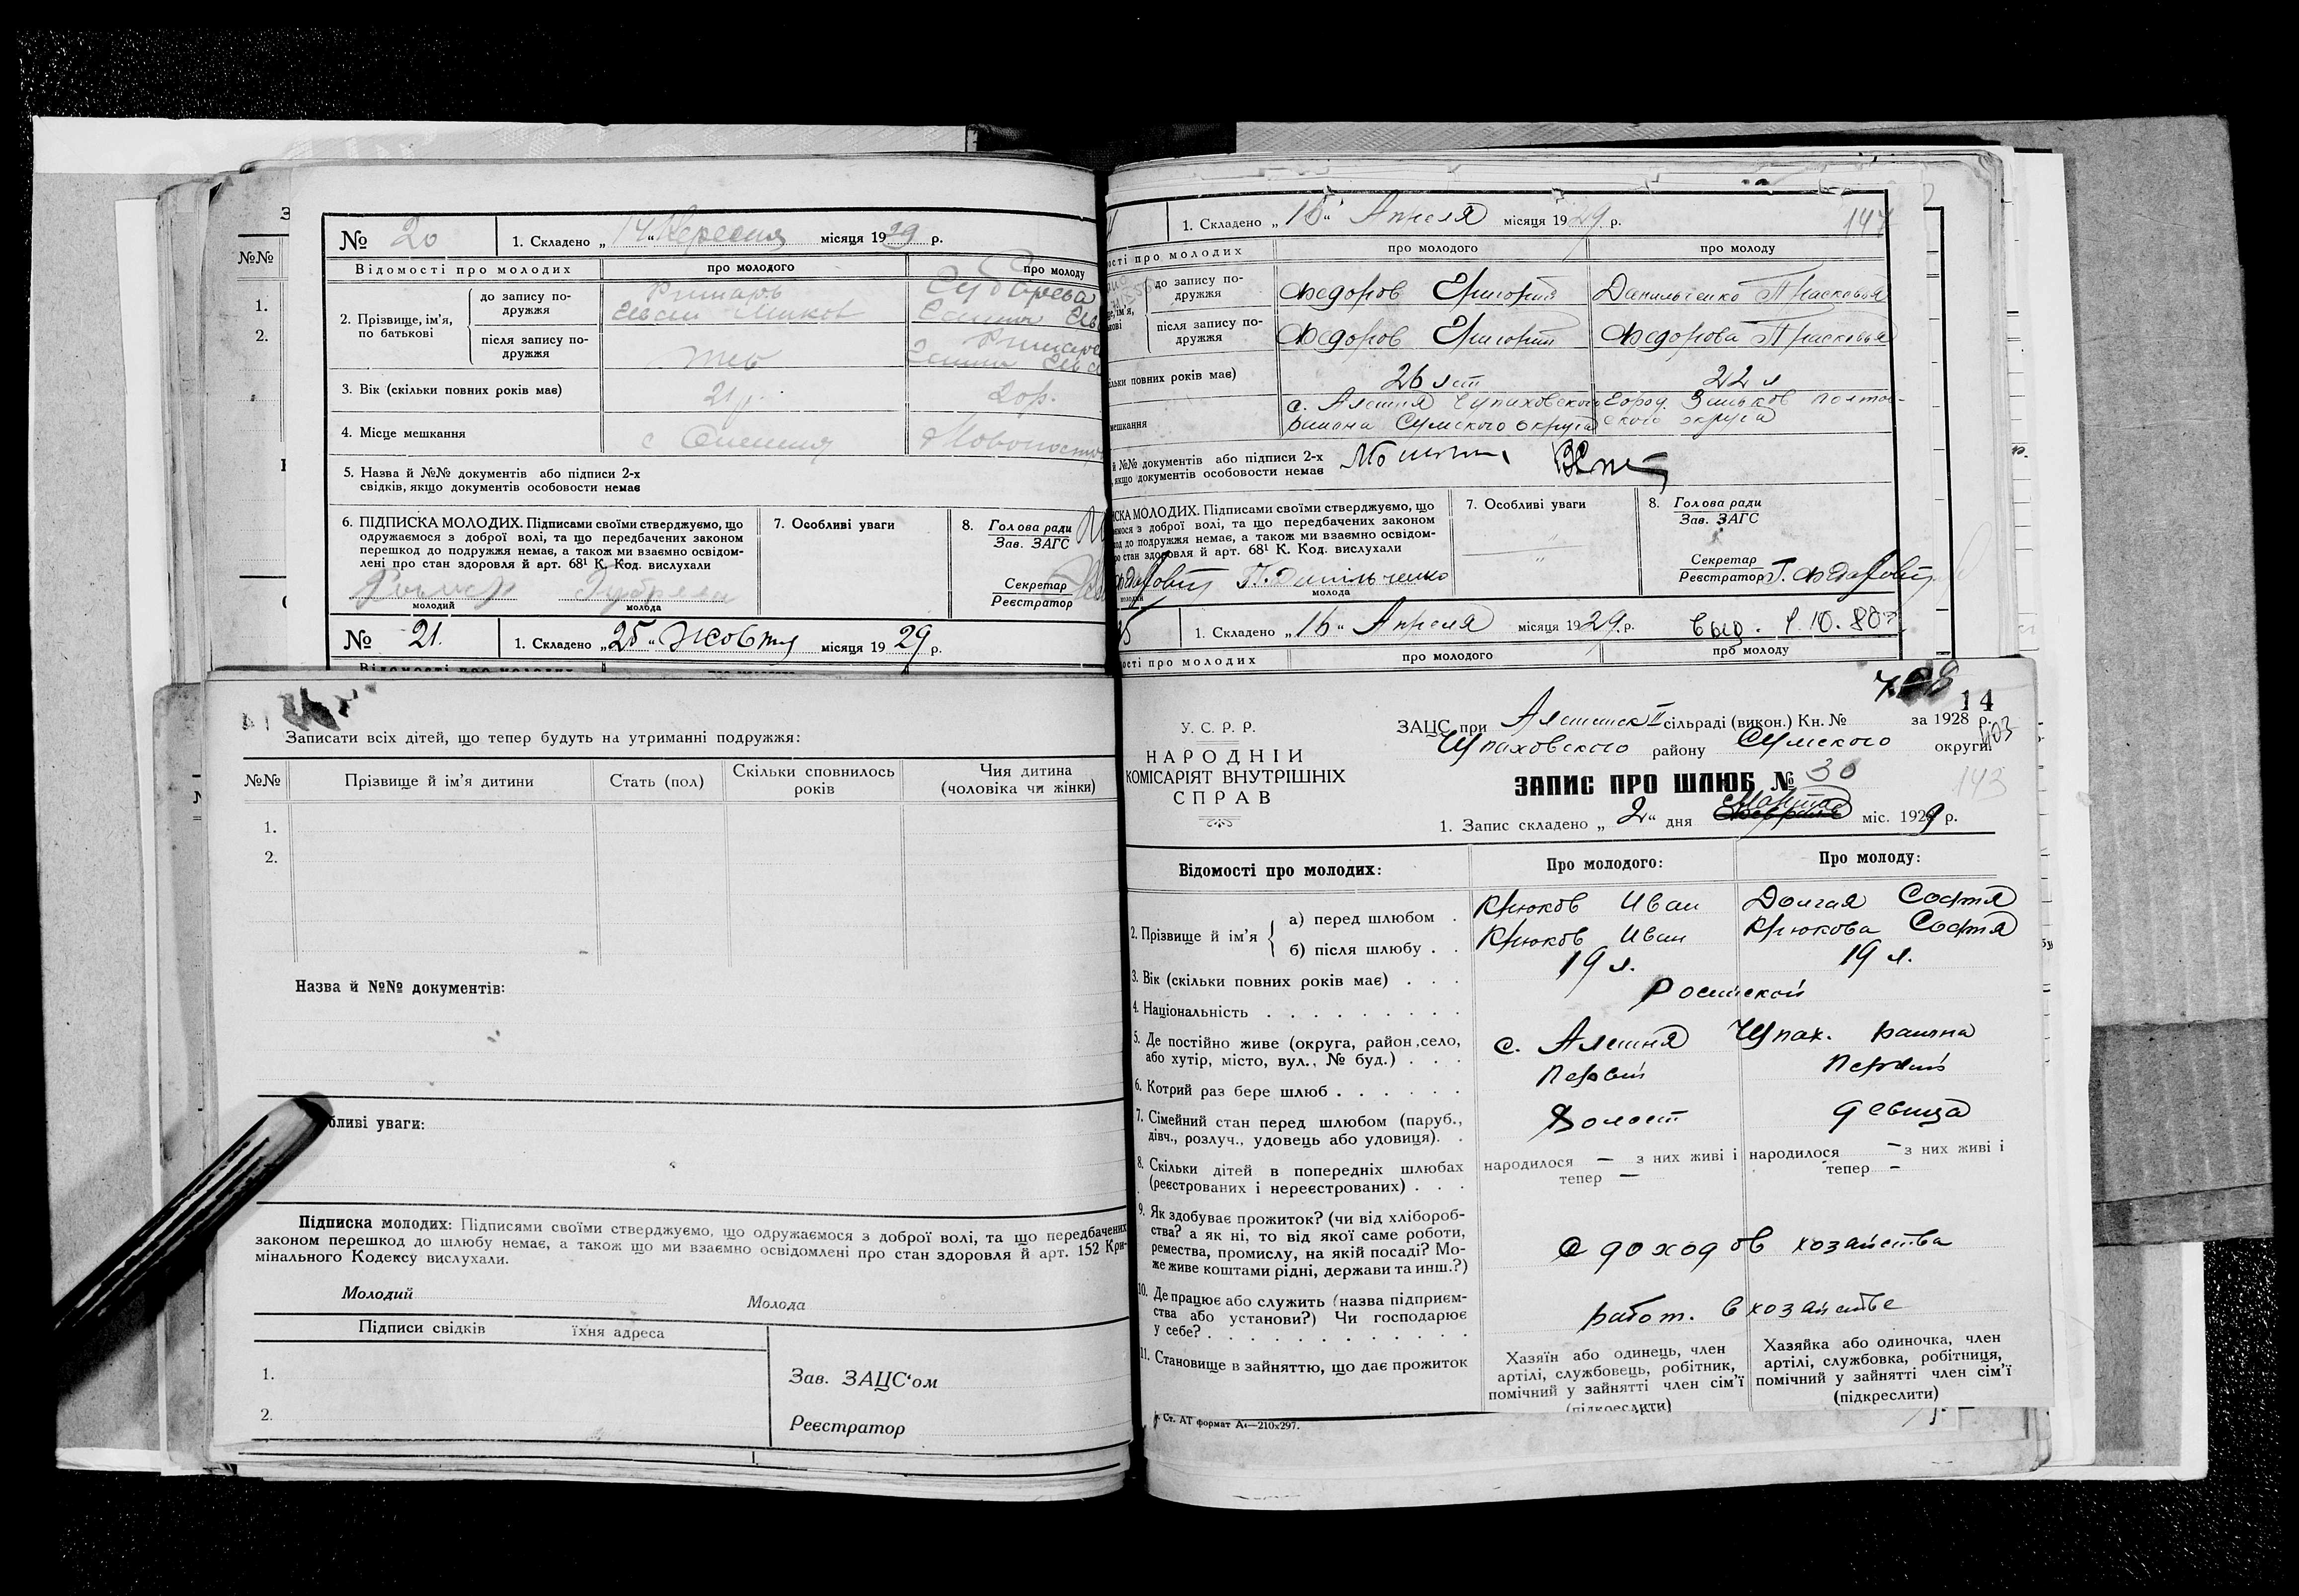 № 20
1. Складено „14“ Вересня місяця 1929 р.
Відомості про молодих
про молодого
про молоду
2. Прізвище, ім'я, по батькові
до запису по-
дружжя
після запису по-
дружжя
3. Вік (скільки повних років має)
21 р.
20 р.
4. Місце мешкання
5. Назва й №№ документів або підписи 2-х
свідків, якщо документів особовости немає
6. ПІДПИСКА МОЛОДИХ. Підписами своїми стверджуємо, що
одружаємося з доброї волі, та що передбачених законом
перешкод до подружжя немає, а також ми взаємно освідом-
лені про стан здоровля й арт. 68¹ К. Код. вислухали
молодий
молода
7. Особливі уваги
8. Голова ради
Зав. ЗАГС
Секретар
Реєстратор
№ 21.
1. Складено „25“ Жовтня місяця 1929 р.
№№
1.
2.
1. Складено „16“ Апреля місяця 1929 р.
147
ості про молодих
про молодого
про молоду
до запису по-
дружжя
Федоров Григорий
Данильченко Прасковья
після запису по-
дружжя
Федоров Григорий
Федорова Прасковья
ільки повних років має)
26 лет
22 л
мешкання
с. Алешня Чупаховского
района Сумского округа
город. Зиньков Полтав-
ского округа
й №№ документів або підписи 2-х
, якщо документів особовости немає
ИСКА МОЛОДИХ. Підписами своїми стверджуємо, що
ємося з доброї волі, та що передбачених законом
од до подружжя немає, а також ми взаємно освідом-
ро стан здоровля й арт. 68¹ К. Код. вислухали
П. Данільченко
молода
7. Особливі уваги
8. Голова ради
Зав. ЗАГС
Секретар
Реєстратор
1. Складено „16“ Апреля місяця 1929 р.
ості про молодих
про молодого
про молоду
Записати всіх дітей, що тепер будуть на утриманні подружжя:
№№
Прізвище й ім'я дитини
Стать (пол)
Скільки сповнилось
років
Чия дитина
(чоловіка чи жінки)
1.
2.
Назва й №№ документів:
бливі уваги:
Підписка молодих: Підписями своїми стверджуємо, що одружаємося з доброї волі, та що передбачених
законом перешкод до шлюбу немає, а також що ми взаємно освідомлені про стан здоровля й арт. 152 Кри-
мінального Кодексу вислухали.
Молодий
Молода
Підписи свідків
їхня адреса
1.
2.
Зав. ЗАЦС‘ом
Реєстратор
14
У. С. Р. Р.
НАРОДНІЙ
КОМІСАРІЯТ ВНУТРІШНІХ
СПРАВ
ЗАЦС при Алешнск II сільраді (викон.) Кн. № за 1928 р.
Чупаховского району Сумского округи
ЗАПИС ПРО ШЛЮБ № 30
143
1. Запис складено „2“ дня Марта міс. 1929 р.
Відомості про молодих:
Про молодого:
Про молоду:
2. Прізвище й ім'я
а) перед шлюбом .
Крюков Иван
Долгая Софія
б) після шлюбу . .
Крюков Иван
Крюкова Софія
3. Вік (скільки повних років має) . . .
19 л.
19 л.
4. Національність . . . . . . . . .
Росийской
5. Де постійно живе (округа, район, село,
або хутір, місто, вул., № буд.) . . .
с. Алешня Чупах. района
6. Котрий раз бере шлюб . . . . . .
Первий
Первый
7. Сімейний стан перед шлюбом (паруб.,
дівч., розлуч., удовець або удовиця). .
Холост
девица
8. Скільки дітей в попередніх шлюбах
(реєстрованих і нереєстрованих) . . .
народилося — з них живі і
тепер —
народилося — з них живі і
тепер —
9. Як здобуває прожиток? (чи від хлібороб-
ства? а як ні, то від якої саме роботи,
ремества, промислу, на якій посаді? Мо-
же живе коштами рідні, держави та инш.?)
С доходов хозайства
10. Де працює або служить (назва підприєм-
ства або установи?) Чи господарює
у себе? . . . . . . . . . . . .
работ. в хозайстве
11. Становище в зайняттю, що дає прожиток
Хазяїн або одинець, член
артілі, службовець, робітник,
помічний у зайнятті член сім'ї
(підкреслити)
Хазяйка або одиночка, член
артілі, службовка, робітниця,
помічний у зайнятті член сім'ї
(підкреслити)
Ст. АТ формат А4—210х297.